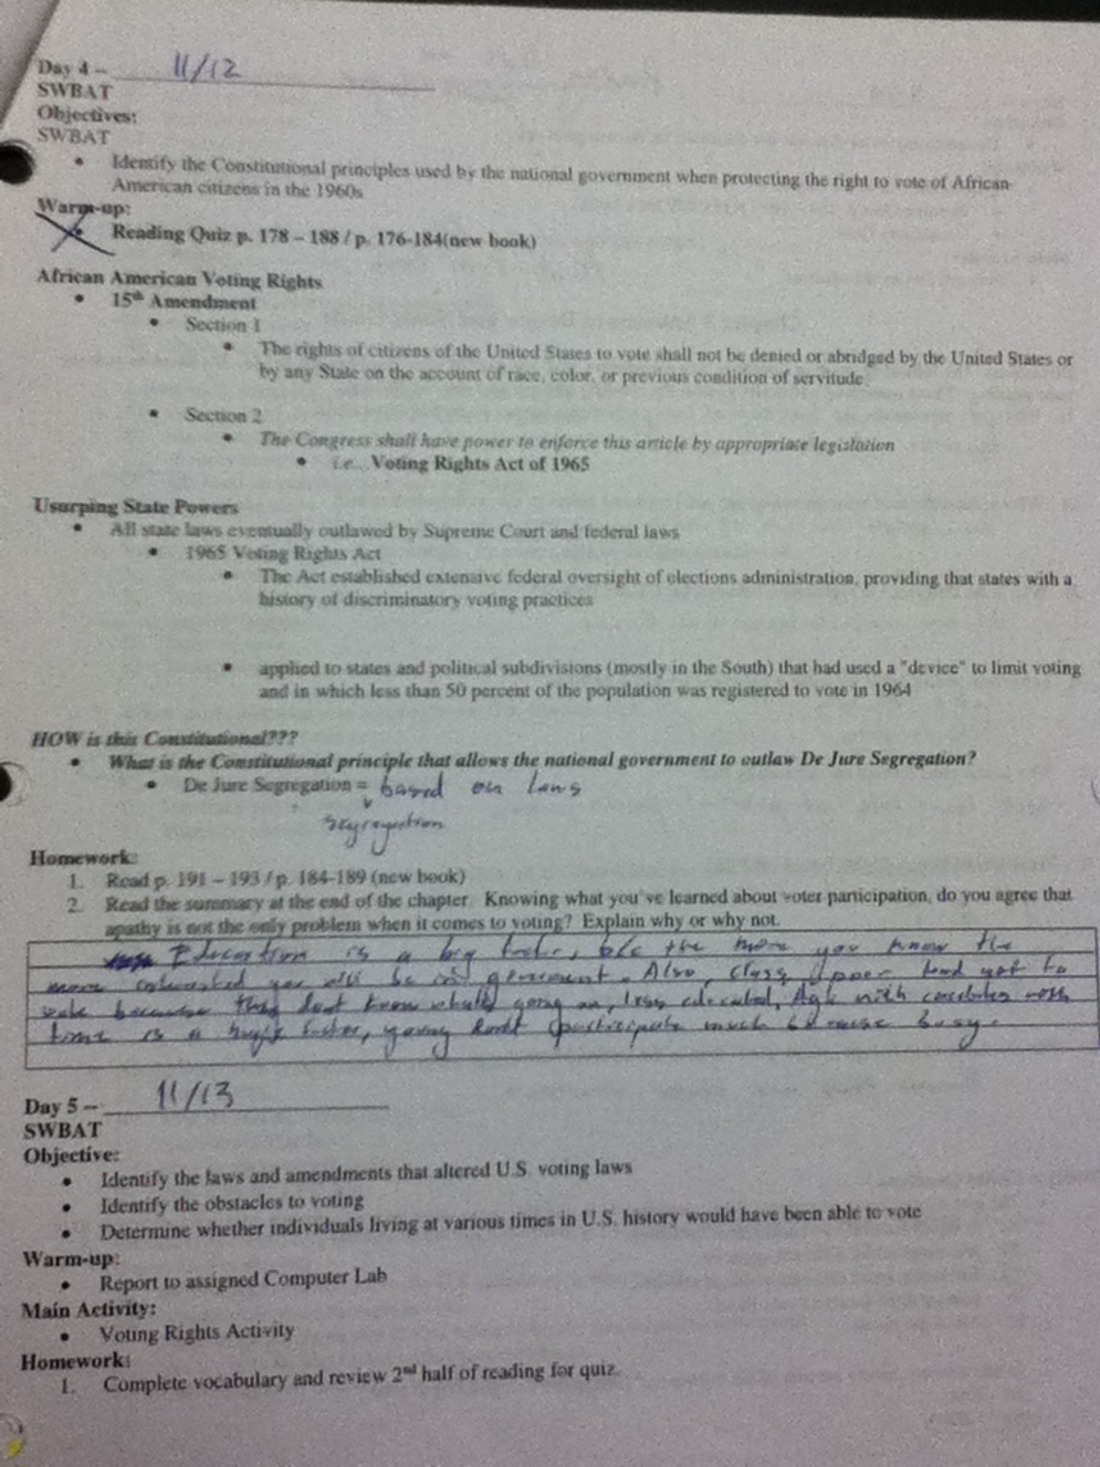 Day 4 – 11/12
SWBAT
Objectives:
SWBAT
• Identify the Constitutional principles used by the national government when protecting the right to vote of African-
American citizens in the 1960s
Warm-up:
• Reading Quiz p. 178 – 188 / p. 176-184(new book)
African American Voting Rights
• 15th Amendment
• Section 1
• The rights of citizens of the United States to vote shall not be denied or abridged by the United States or
by any State on the account of race, color, or previous condition of servitude.
• Section 2
• The Congress shall have power to enforce this article by appropriate legislation
• i.e. Voting Rights Act of 1965
Usurping State Powers
• All state laws eventually outlawed by Supreme Court and federal laws
• 1965 Voting Rights Act
• The Act established extensive federal oversight of elections administration, providing that states with a
history of discriminatory voting practices
• applied to states and political subdivisions (mostly in the South) that had used a "device" to limit voting
and in which less than 50 percent of the population was registered to vote in 1964
HOW is this Constitutional???
• What is the Constitutional principle that allows the national government to outlaw De Jure Segregation?
• De Jure Segregation = based on laws
segregation
Homework:
1. Read p. 191 – 193 / p. 184-189 (new book)
2. Read the summary at the end of the chapter. Knowing what you've learned about voter participation, do you agree that
apathy is not the only problem when it comes to voting? Explain why or why not.
Education is a big factor, b/c the more you know the
more interested you will be in government. Also, class, poor tend not to
vote because they dont know whats going on, less educated, Age with
time is a huge factor, young dont participate much because busy.
Day 5 – 11/13
SWBAT
Objective:
• Identify the laws and amendments that altered U.S. voting laws
• Identify the obstacles to voting
• Determine whether individuals living at various times in U.S. history would have been able to vote
Warm-up:
• Report to assigned Computer Lab
Main Activity:
• Voting Rights Activity
Homework:
1. Complete vocabulary and review 2nd half of reading for quiz.